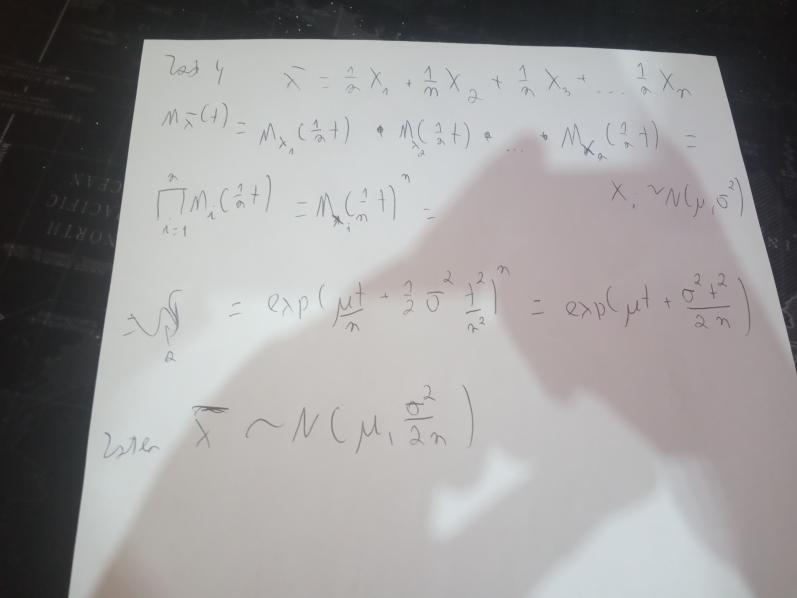 Zad 4 X̄ = 1/n X₁ + 1/n X₂ + 1/n X₃ + ... 1/n Xₙ
M_X̄(t) = M_X₁(1/n t) · M_X₂(1/n t) · ... · M_Xₙ(1/n t) =
∏_{i=1}^{n} M_i(1/n t) = M_X_i(1/n t)ⁿ = X_i ~ N(μ, σ²)
= = exp(μt/n + 1/2 σ² t²/n²)ⁿ = exp(μt + σ²t²/2n)
Zatem X̄ ~ N(μ, σ²/2n)